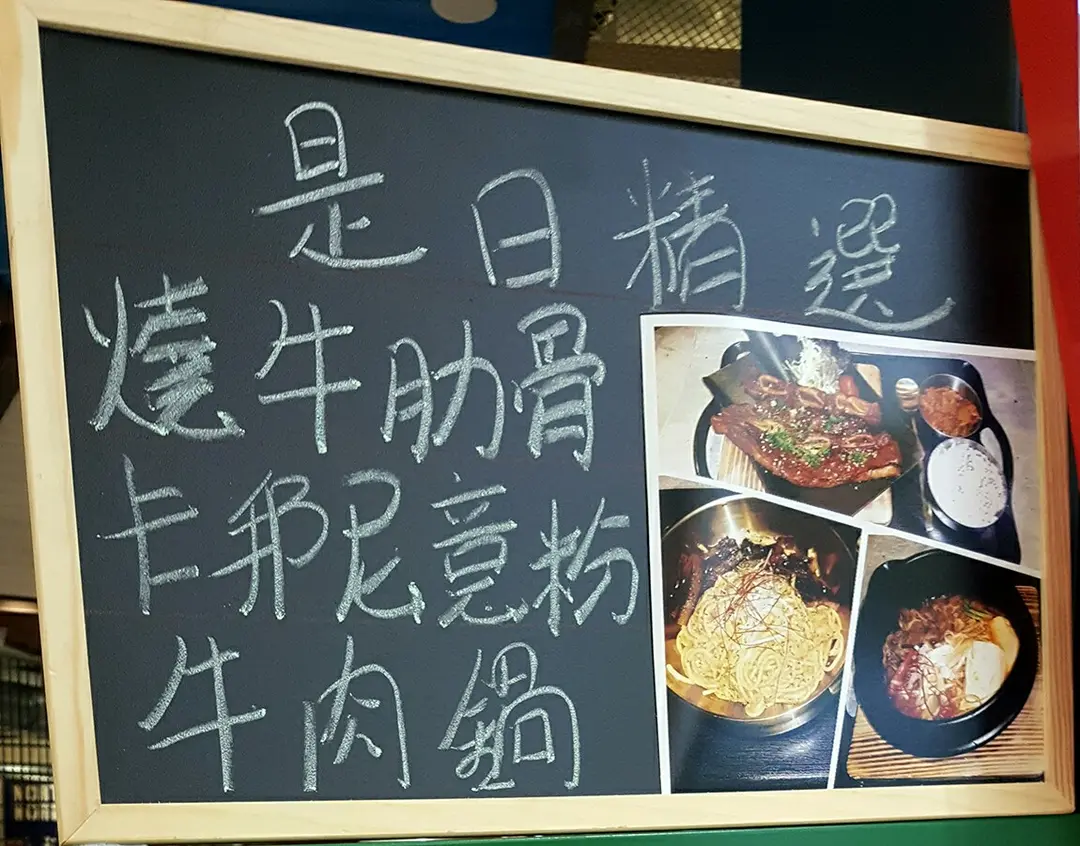 是日精選
燒牛肋骨
卡邦尼意粉
牛肉鍋